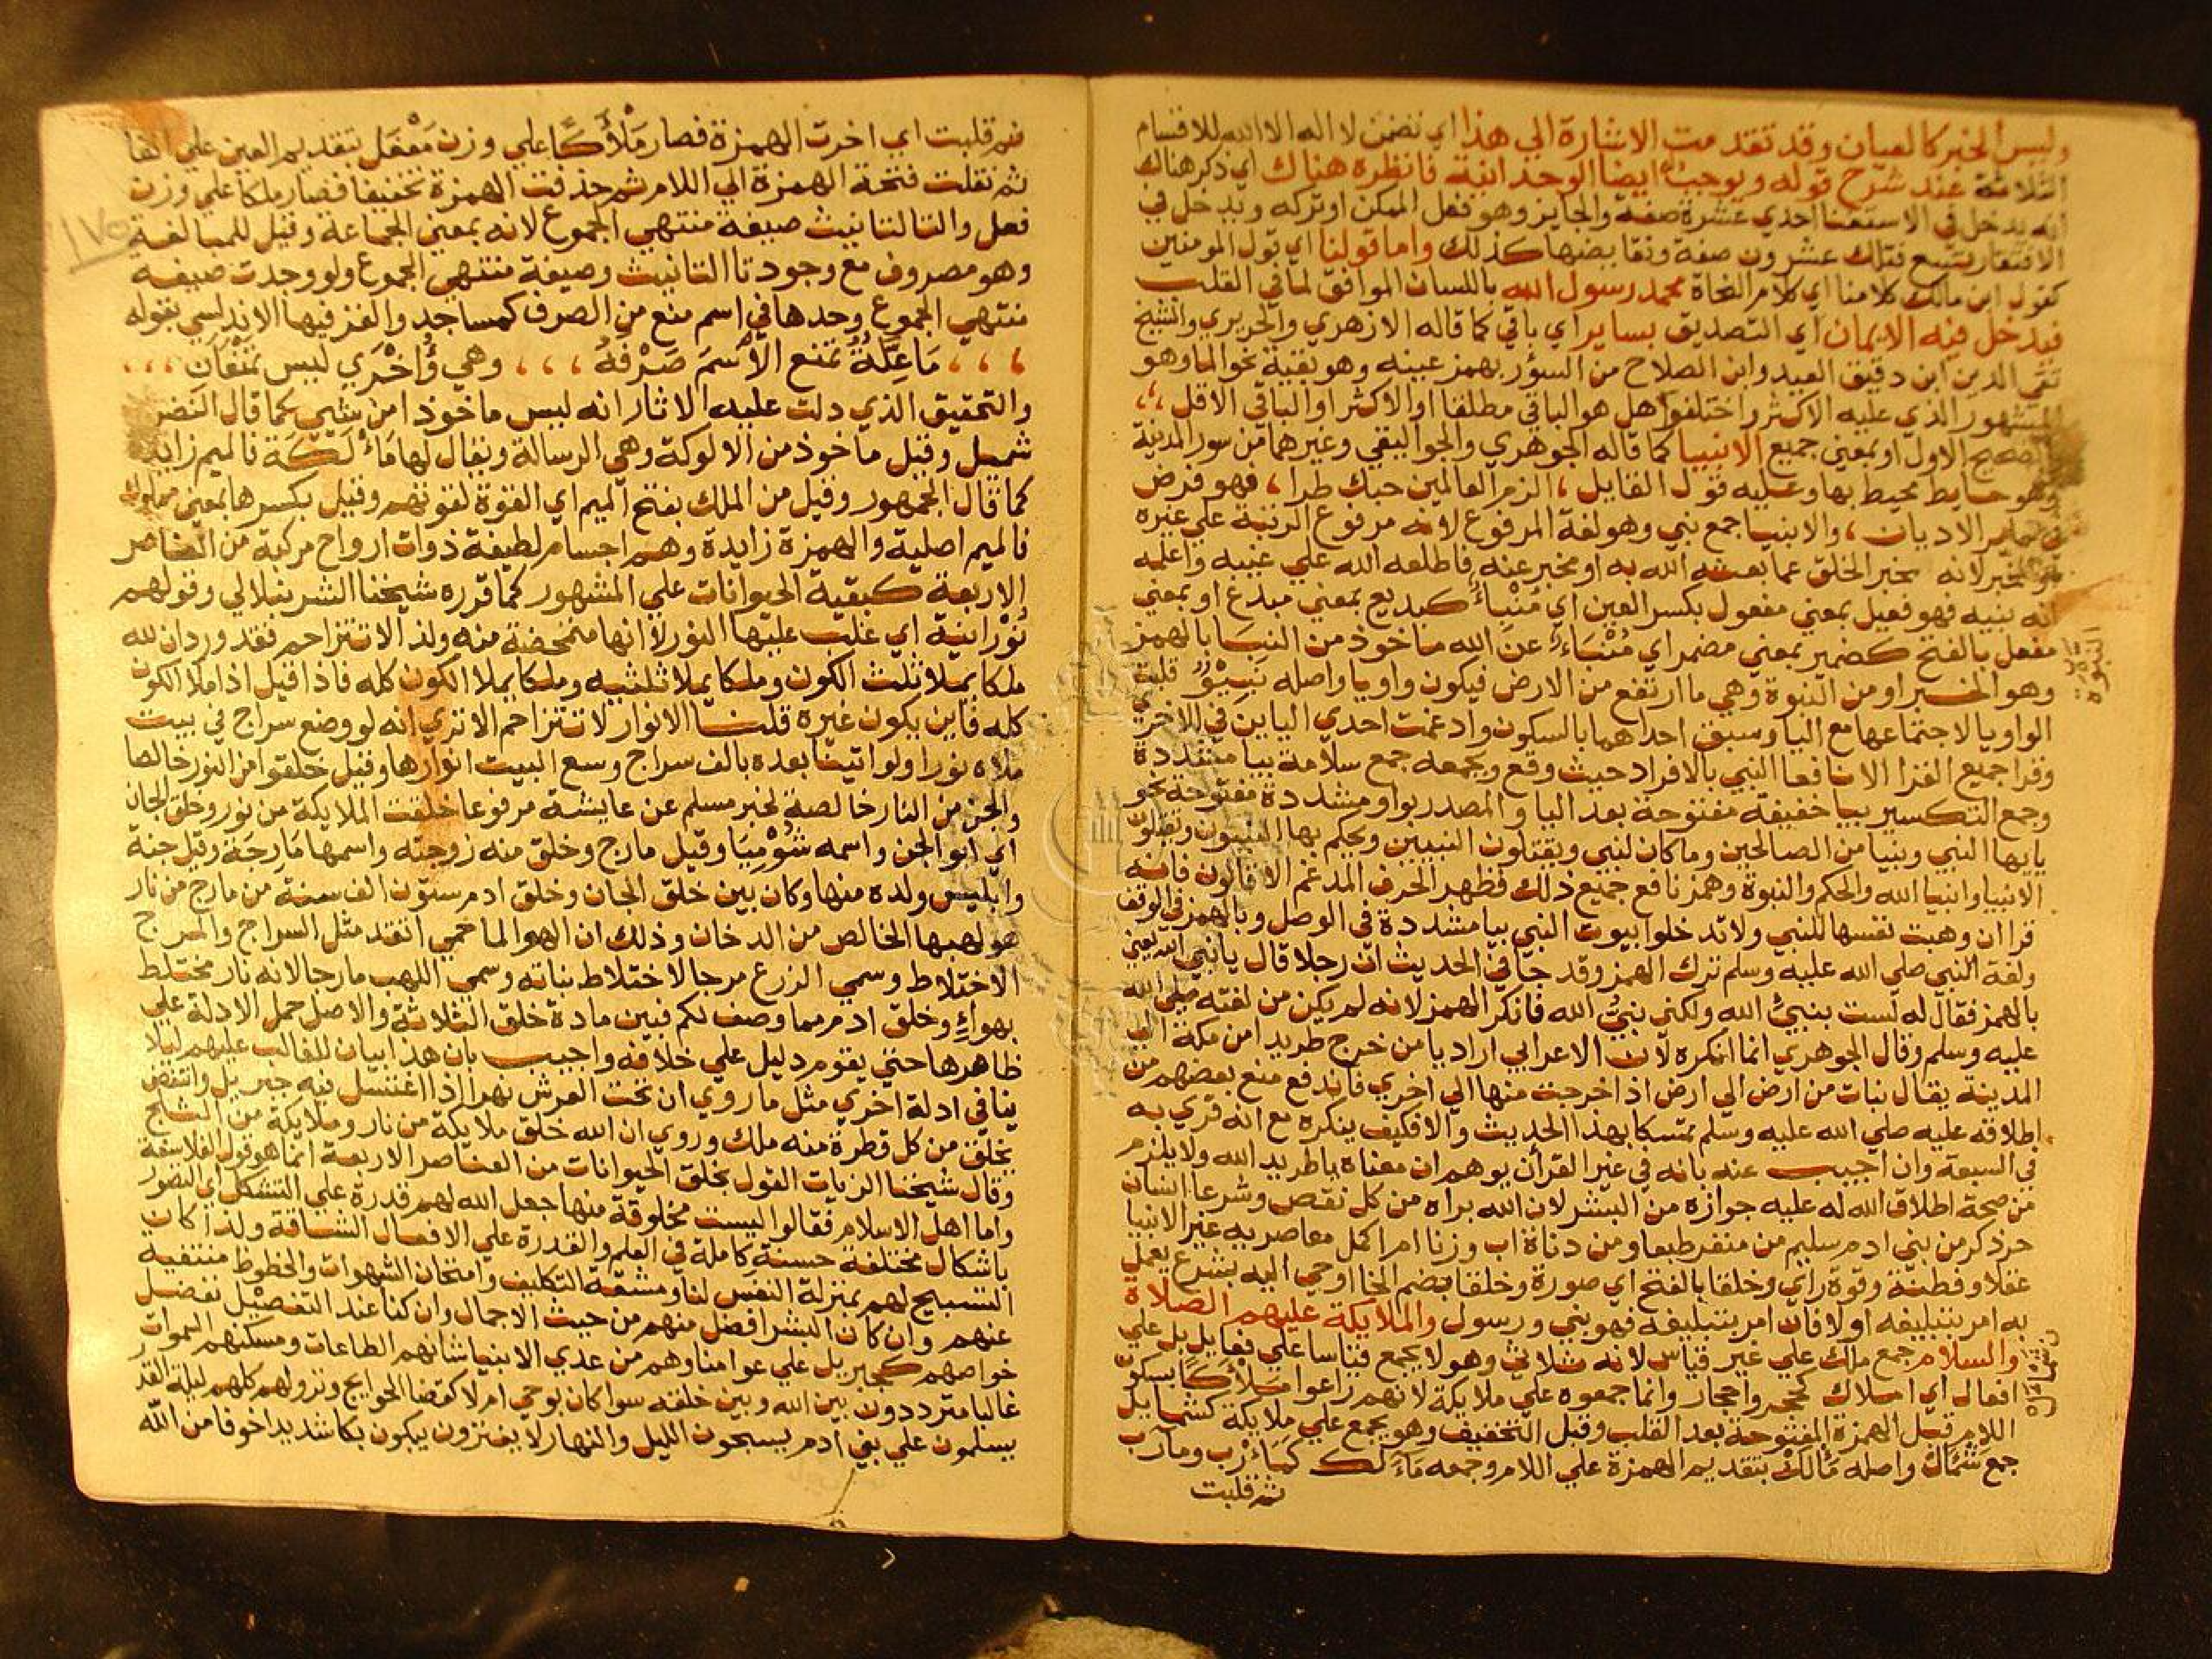 وليس الخبر كالعيان وقد تقدمت الاشارة الي هذا اي تضمن لا اله الا الله للاقسام
الثلاثة عند شرح قوله ويوجب ايضا الوحدانية فانظره هناك اي ذكر هناك
انه يدخل في الاستغنا احدي عشرة صفة والجايز وهو فعل الممكن او تركه ويدخل في
الافتقار تسع فتلك عشرون صفة ونقايضها كذلك واما قولنا اي قول المومنين
كقول ابن مالك كلامنا اي كلام النحاة محمد رسول الله باللسان الموافق لما في القلب
فيدخل فيه الايمان اي التصديق بساير اي باقي كما قاله الازهري والحريري والشيخ
تقي الدين ابن دقيق العيد وابن الصلاح من السؤر بهمز عينه وهو بقية نحو الما وهو
المشهور الذي عليه الاكثر واختلفوا هل هو الباقي مطلقا او الاكثر او الباقي الاقل
الصحيح الاول او بمعني جميع الانبيا كما قاله الجوهري والجواليقي وغيرهما من سور المدينة
وهو حايط محيط بها وعليه قول القايل الزم العالمين حبك طرا، فهو فرض
في ساير الاديان، والانبيا جمع نبي وهو لغة المرفوع لانه مرفوع الرتبة علي غيره
او المخبر لانه يخبر الخلق عما بعثه الله به او مخبر عنه فاطلعه الله علي غيبه واعلمه
انه نبيه فهو فعيل بمعني مفعول بكسر العين اي مُنْبِاءٌ كبديع بمعني مبدع او بمعني
مفعل بالفتح كضمير بمعني مضمر اي مُنْبَاءٌ عن الله ماخوذ من النبا بالهمز
وهو الخبر او من النبوة وهي ما ارتفع من الارض فيكون واويا واصله نبيوٌ قلبت
الواو يا لاجتماعها مع اليا وسبق احداهما بالسكون وادغمت احدي الياين في الاخري
وقرا جميع القرا الا نافعا النبي بالافراد حيث وقع وبجمعه جمع سلامة بيا مشددة
وجمع التكسير بيا خفيفة مفتوحة بعد اليا والمصدر بواو مشددة مفتوحة نحو
يايها النبي ونبيا من الصالحين وما كان لنبي ويقتلون النبيين ويحكم بها النبيون وتقتلون
الانبيا وانبيا الله والحكم والنبوة وهمز نافع جميع ذلك فظهر الحرف المدغم الا قالون فانه
قرا ان وهبت نفسها للنبي ولا تدخلوا بيوت النبي بيا مشددة في الوصل وبالهمز في الوقف
ولغة النبي صلي الله عليه وسلم ترك الهمز وقد جا في الحديث ان رجلا قال يا نبيء الله يعني
بالهمز فقال له لست بنبيء الله ولكني نبي الله فانكر الهمز لانه لم يكن من لغته صلي الله
عليه وسلم وقال الجوهري انما انكره لان الاعرابي اراد يا من خرج طريدا من مكة الي
المدينة يقال نبات من ارض الي ارض اذا خرجت منها الي اخري فاندفع منع بعضهم من
اطلاقه عليه صلي الله عليه وسلم تمسكا بهذا الحديث والا فكيف ينكره مع انه قري به
في السبعة وان اجيب عنه بانه في غير القران يوهم ان معناه يا طريد الله ولا يلزم
من صحة اطلاق الله له عليه جوازه من البشر لان الله براه من كل نقص وشرعا انسان
حر ذكر من بني ادم سليم من منفر طبعا ومن دناة اب وزنا ام اكمل معاصريه غير الانبيا
عقلا وفطنة وقوة راي وخلقا بالفتح اي صورة وخلقا بضم الخا اوحي اليه بشرع يعمل
به امر بتبليغه او لا فان امر بتبليغه فهو نبي ورسول والملايكة عليهم الصلاة
والسلام جمع ملك علي غير قياس لانه ثلاثي وهو لا يجمع قياسا علي فعايل بل علي
افعال اي املاك كحجر واحجار وانما جمعوه علي ملايكة لانهم راعوا مَلْأَكًا بسكون
اللام قبل الهمزة المفتوحة بعد القلب وقبل التخفيف وهو يجمع علي ملايكة كشمايل
جمع شمال واصله مالك بتقديم الهمزة علي اللام وجمعه مآلك كمآرب ومآرب
ثم قلبت
النبوة
شمال
ثم قلبت اي اخرت الهمزة فصار مَلْأَكًا علي وزن مَعْفَل بتقديم العين علي الفا
ثم نقلت فتحة الهمزة الي اللام ثم حذفت الهمزة تخفيفا فصار ملكا علي وزن
فعل والتا لتانيث صيغة منتهي الجموع لانه بمعني الجماعة وقيل للمبالغة
وهو مصروف مع وجود تا التانيث وصيغة منتهي الجموع ولو وحدت صيغة
منتهي الجموع وحدها في اسم منع من الصرف كمساجد والغز فيها الاندلسي بقوله
، ، ، مَا عِلَّةٌ تمنع الأسمَ صَرْفَهُ ، ، ، وهي وأُخْرَي ليس تمنعَانِ ، ، ،
والتحقيق الذي دلت عليه الاثار انه ليس ماخوذا من شي كما قال النضر بن
شميل وقيل ماخوذ من الالوكة وهي الرسالة ويقال لها مَأْلَكَة فالميم زايدة
كما قال الجمهور وقيل من الملك بفتح الميم اي القوة لقوتهم وقيل بكسرها بمعني مملوك
فالميم اصلية والهمزة زايدة وهم اجسام لطيفة ذوات ارواح مركبة من العناصر
الاربعة كبقية الحيوانات علي المشهور كما قرره شيخنا الشرنبلالي وقولهم
نُوْرانية اي غلب عليها النور لا انها متمحضة منه ولذا لا تتزاحم فقد ورد ان لله
ملكا يملا ثلث الكون وملكا يملا ثلثيه وملكا يملا الكون كله فاذا قيل اذا ملا الكون
كله فاين يكون غيره قلنا الانوار لا تتزاحم الا تري انه لو وضع سراج في بيت
ملاه نورا ولو اتينا بعده بالف سراج وسع البيت انوارها وقيل خلقوا من النور خالصا
والجن من النار خالصة لخبر مسلم عن عايشة مرفوعا خلقت الملايكة من نور وخلق الجان
اي ابو الجن واسمه شُوْمِيَا وقيل مارج وخلق منه زوجته واسمها مَارجَة وقيل جنة
وابليس ولده منها وكان بين خلق الجان وخلق ادم ستون الف سنة من مارج من نار
هو لهبها الخالص من الدخان وذلك ان الهوا لما حمي اتقد مثل السراج والمرج
الاختلاط وسمي الزرع مرجا لاختلاط نباته وسمي اللهب مارجا لانه نار مختلط
بهواءٍ وخلق ادم مما وصف لكم فبين مادة خلق الثلاثة والاصل حمل الادلة علي
ظاهرها حتي يقوم دليل علي خلافه واجيب بان هذا بيان للغالب عليهم ليلا
ينافي ادلة اخري مثل ما روي ان تحت العرش نهرا اذا اغتسل فيه جبريل وانتفض
يخلق من كل قطرة منه ملك وروي ان الله خلق ملايكة من نار وملايكة من الثلج
وقال شيخنا الزيات القول بخلق الحيوانات من العناصر الاربعة انما هو قول الفلاسفة
واما اهل الاسلام فقالوا ليست مخلوقة منها جعل الله لهم قدرة علي التشكل اي التصور
باشكال مختلفة حسنة كاملة في العلم والقدرة علي الافعال الشاقة ولذا كان
التسبيح لهم بمنزلة النفس لنا ومشقة التكليف وامتحان الشهوات والحظوظ منتفية
عنهم وان كان البشر افضل منهم من حيث الاجمال وان كنا عند التفصيل نفضل
خواصهم كجبريل علي عوامنا وهم من عدي الانبيا شانهم الطاعات ومسكنهم السموات
غالبا مترددون بين الله وبين خلقه سوا كان بوحي ام لا كقضا الحوايج ونزولهم كلهم ليلة القدر
يسلمون علي بني ادم يسبحون الليل والنهار لا يفترون يبكون بكا شديدا خوفا من الله
١٧٥